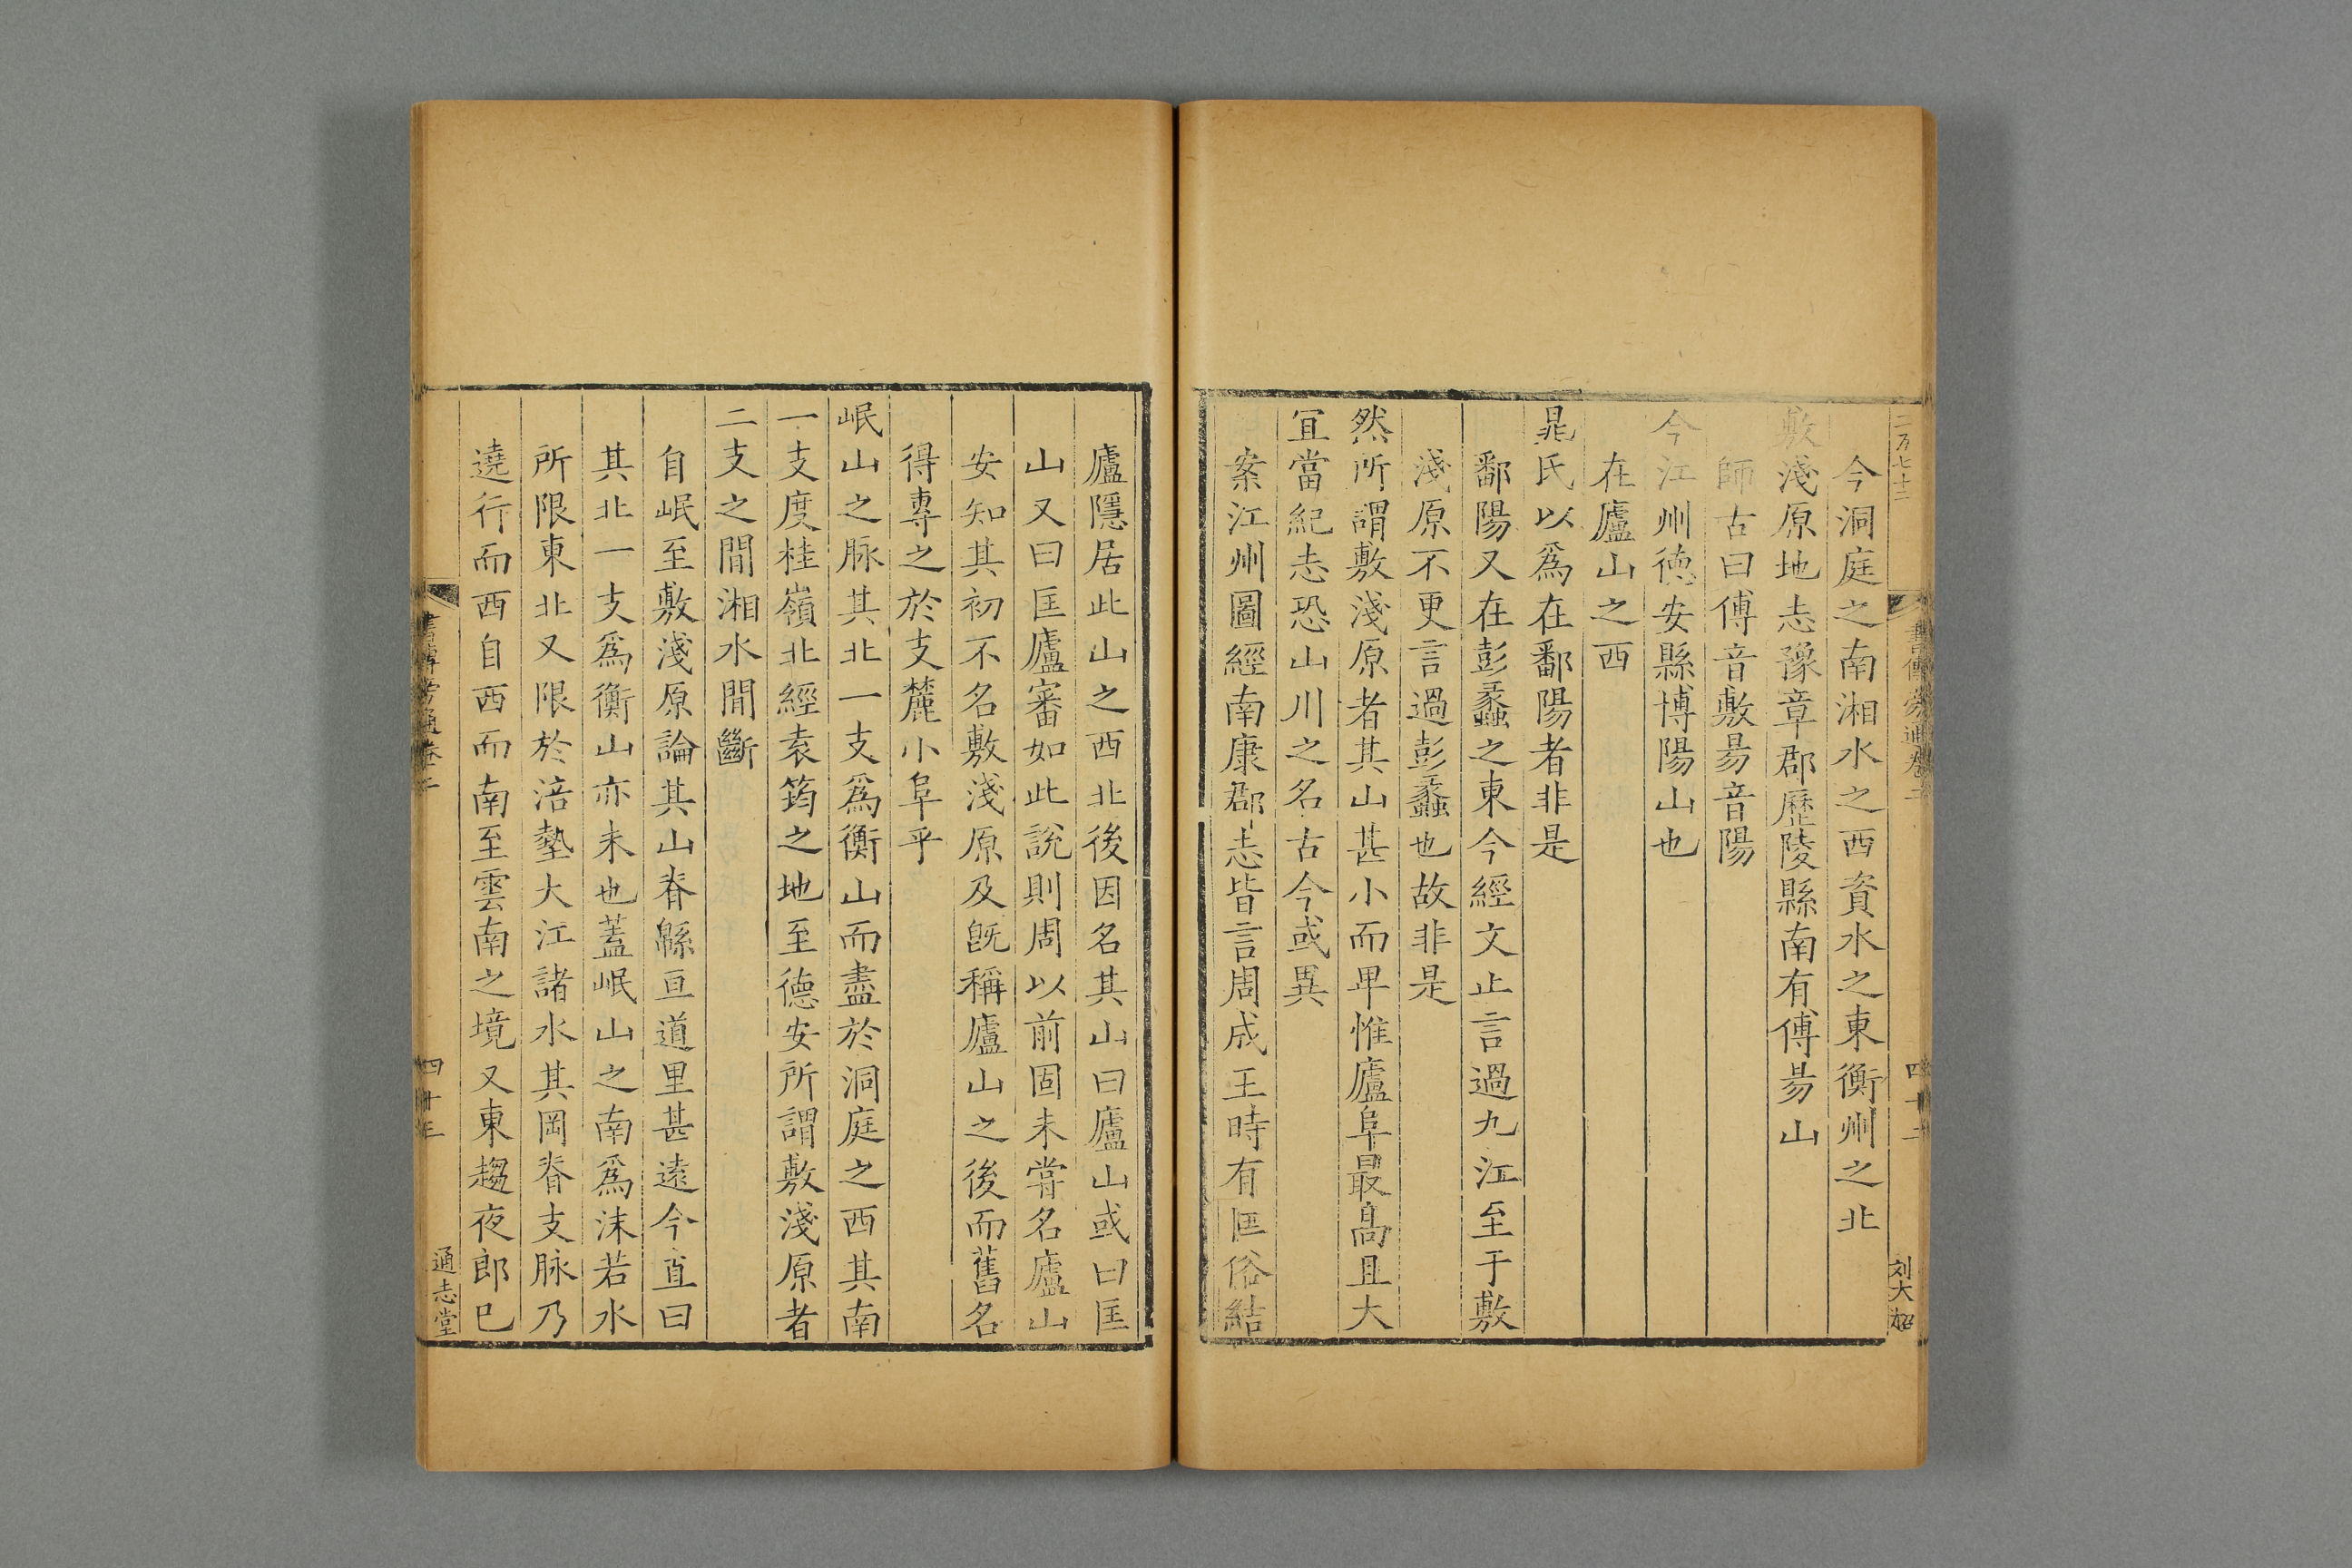 二百七十二
書傳旁通卷二
四十二
刘大招
今洞庭之南湘水之西資水之東衡州之北
敷淺原地志豫章郡歷陵縣南有傅昜山
師古曰傅音敷昜音陽
今江州德安縣博陽山也
在廬山之西
晁氏以爲在鄱陽者非是
鄱陽又在彭蠡之東今經文止言過九江至于敷
淺原不更言過彭蠡也故非是
然所謂敷淺原者其山甚小而卑惟廬阜最高且大
宜當紀志恐山川之名古今或異
案江州圖經南康郡志皆言周成王時有匡俗結
廬隱居此山之西北後因名其山曰廬山或曰匡
山又曰匡廬審如此說則周以前固未嘗名廬山
安知其初不名敷淺原及旣稱廬山之後而舊名
得專之於支麓小阜乎
岷山之脉其北一支爲衡山而盡於洞庭之西其南
一支度桂嶺北經袁筠之地至德安所謂敷淺原者
二支之間湘水間斷
自岷至敷淺原論其山脊緜亘道里甚遠今直曰
其北一支爲衡山亦未也蓋岷山之南爲沫若水
所限東北又限於涪墊大江諸水其岡脊支脉乃
遶行而西自西而南至雲南之境又東趨夜郎巳
書傳旁通卷二
四十三
通志堂